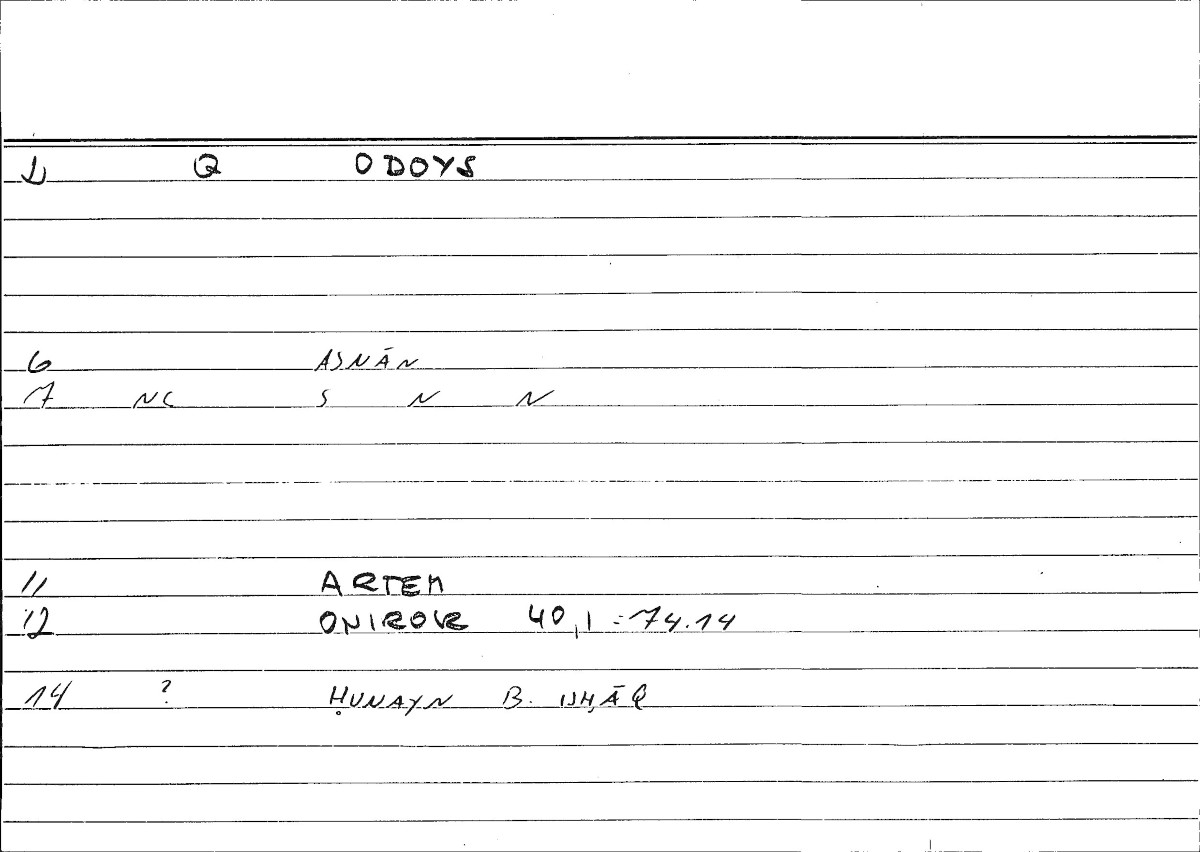 1 Q ODOYS
6 ASNĀN
7 NC S N N
11 ARTEM
12 ONIROKR 40,1 = 74.14
14 ? ḤUNAYN B. ISḤĀQ